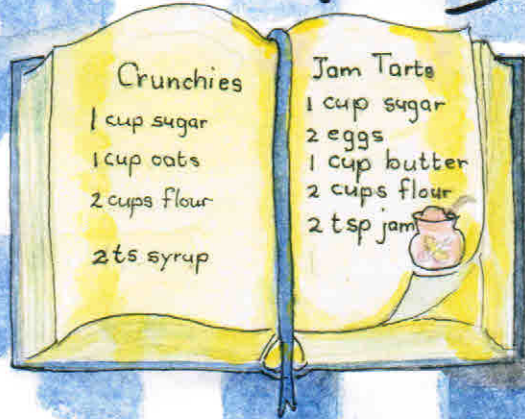 Crunchies
1 cup sugar
1 cup oats
2 cups flour
2 ts syrup
Jam Tarts
1 cup sugar
2 eggs
1 cup butter
2 cups flour
2 tsp jam